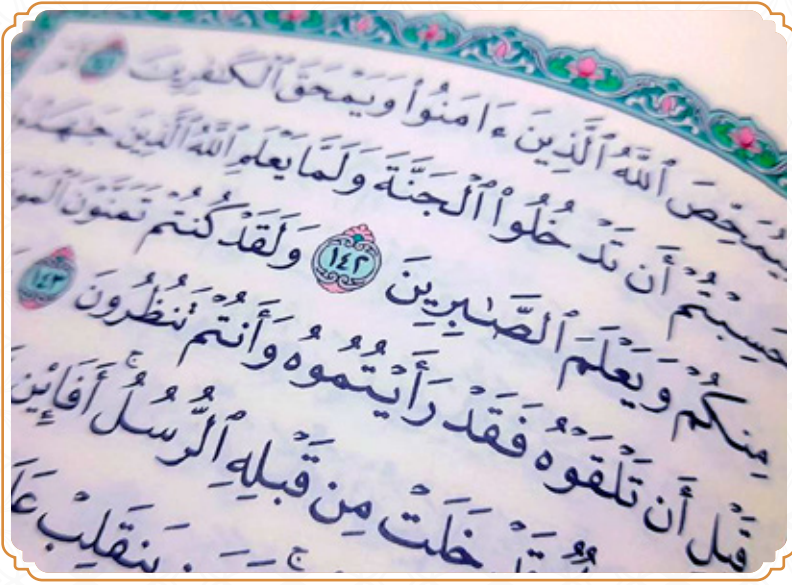 وَلِيُمَحِّصَ ٱللَّهُ ٱلَّذِينَ ءَامَنُوا۟ وَيَمْحَقَ ٱلْكَٰفِرِينَ ١٤١
حَسِبْتُمْ أَن تَدْخُلُوا۟ ٱلْجَنَّةَ وَلَمَّا يَعْلَمِ ٱللَّهُ ٱلَّذِينَ جَٰهَدُوا۟
مِنكُمْ وَيَعْلَمَ ٱلصَّٰبِرِينَ ١٤٢ وَلَقَدْ كُنتُمْ تَمَنَّوْنَ ٱلْمَوْتَ
قَبْلِ أَن تَلْقَوْهُ فَقَدْ رَأَيْتُمُوهُ وَأَنتُمْ تَنظُرُونَ ١٤٣
خَلَتْ مِن قَبْلِهِ ٱلرُّسُلُ ۚ أَفَإِي۟ن
يَنقَلِبْ